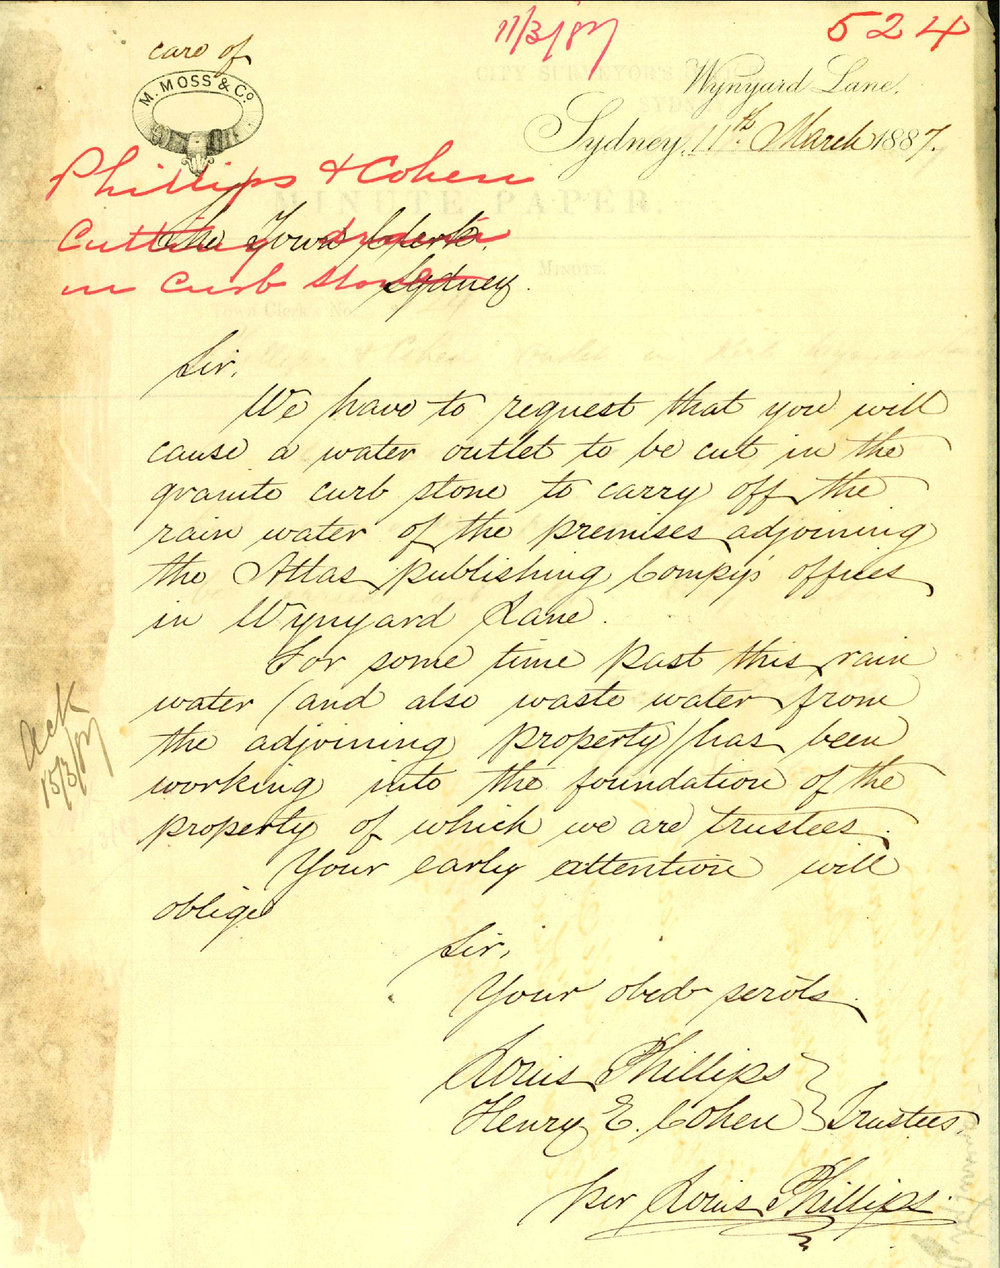 11/3/87
524
care of
M. MOSS & Co.
Wynyard Lane,
Sydney, 11th March 1887.
Phillips & Cohen
Cutting drain
in curb stone
The Town Clerk,
Sydney.
MINUTE PAPER.
Sir,
We have to request that you will
cause a water outlet to be cut in the
granite curb stone to carry off the
rain water of the premises adjoining
the Atlas publishing Compy's offices
in Wynyard Lane.
For some time past this rain
water (and also waste water from
the adjoining property) has been
working into the foundation of the
property of which we are trustees.
Your early attention will
oblige
Ack
15/3/87
Sir,
Your obedt servts
Louis Phillips
Henry E. Cohen } Trustees
per Louis Phillips.